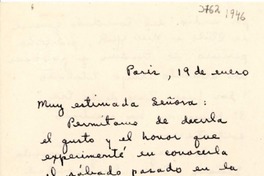 3762 1946
Paris, 19 de enero
Muy estimada Señora:
Permítame de decirla
el gusto y el honor que
experimenté en conocerla
el sábado pasado en la